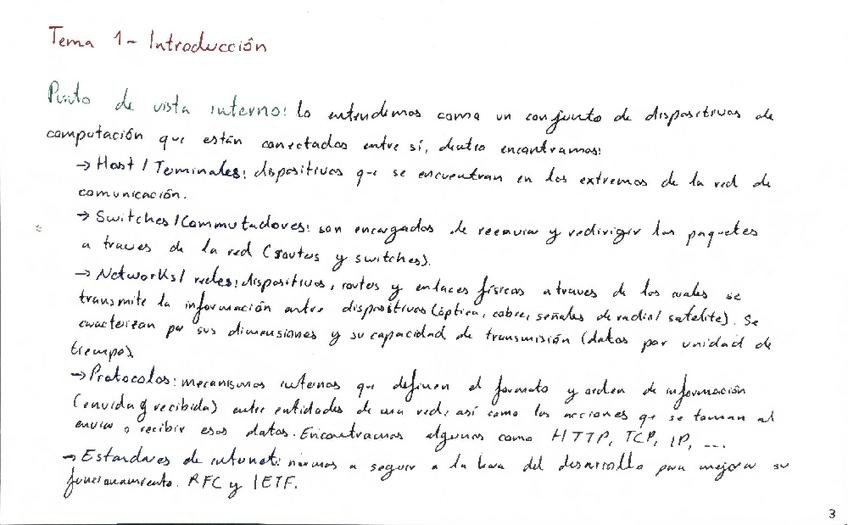 Tema 1 - Introducción
Punto de vista interno: lo entendemos como un conjunto de dispositivos de
computación que están conectados entre sí, dentro encontramos:
→ Host / Terminales: dispositivos que se encuentran en los extremos de la red de
comunicación.
→ Switches / Conmutadores: son encargados de reenviar y redirigir los paquetes
a traves de la red (routes y switches).
→ Networks / redes: dispositivos, routes y enlaces físicos a traves de los cuales se
transmite la información entre dispositivos (óptica, cobre, señales de radio / satelite). Se
caracterizan por sus dimensiones y su capacidad de transmisión (datos por unidad de
tiempo).
→ Protocolos: mecanismos internos que definen el formato y orden de información
(envida y recibida) entre entidades de una red, así como las acciones que se toman al
enviar o recibir esos datos. Encontramos algunos como HTTP, TCP, IP, ...
→ Estandares de internet: normas a seguir a la hora del desarrollo para mejorar su
funcionamiento. RFC y IETF.
3